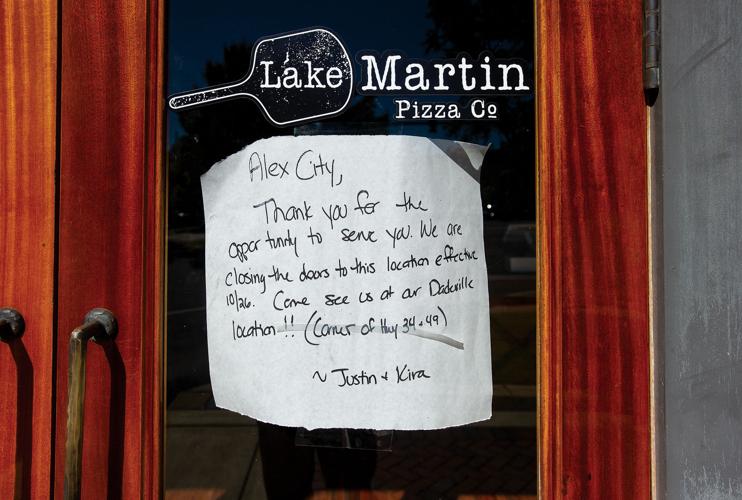 Lake Martin
Pizza Co
Alex City,
Thank you for the
opportunity to serve you. We are
closing the doors to this location effective
10/26. Come see us at our Dadeville
location!! (Corner of Hwy 34 + 49)
~ Justin + Kira